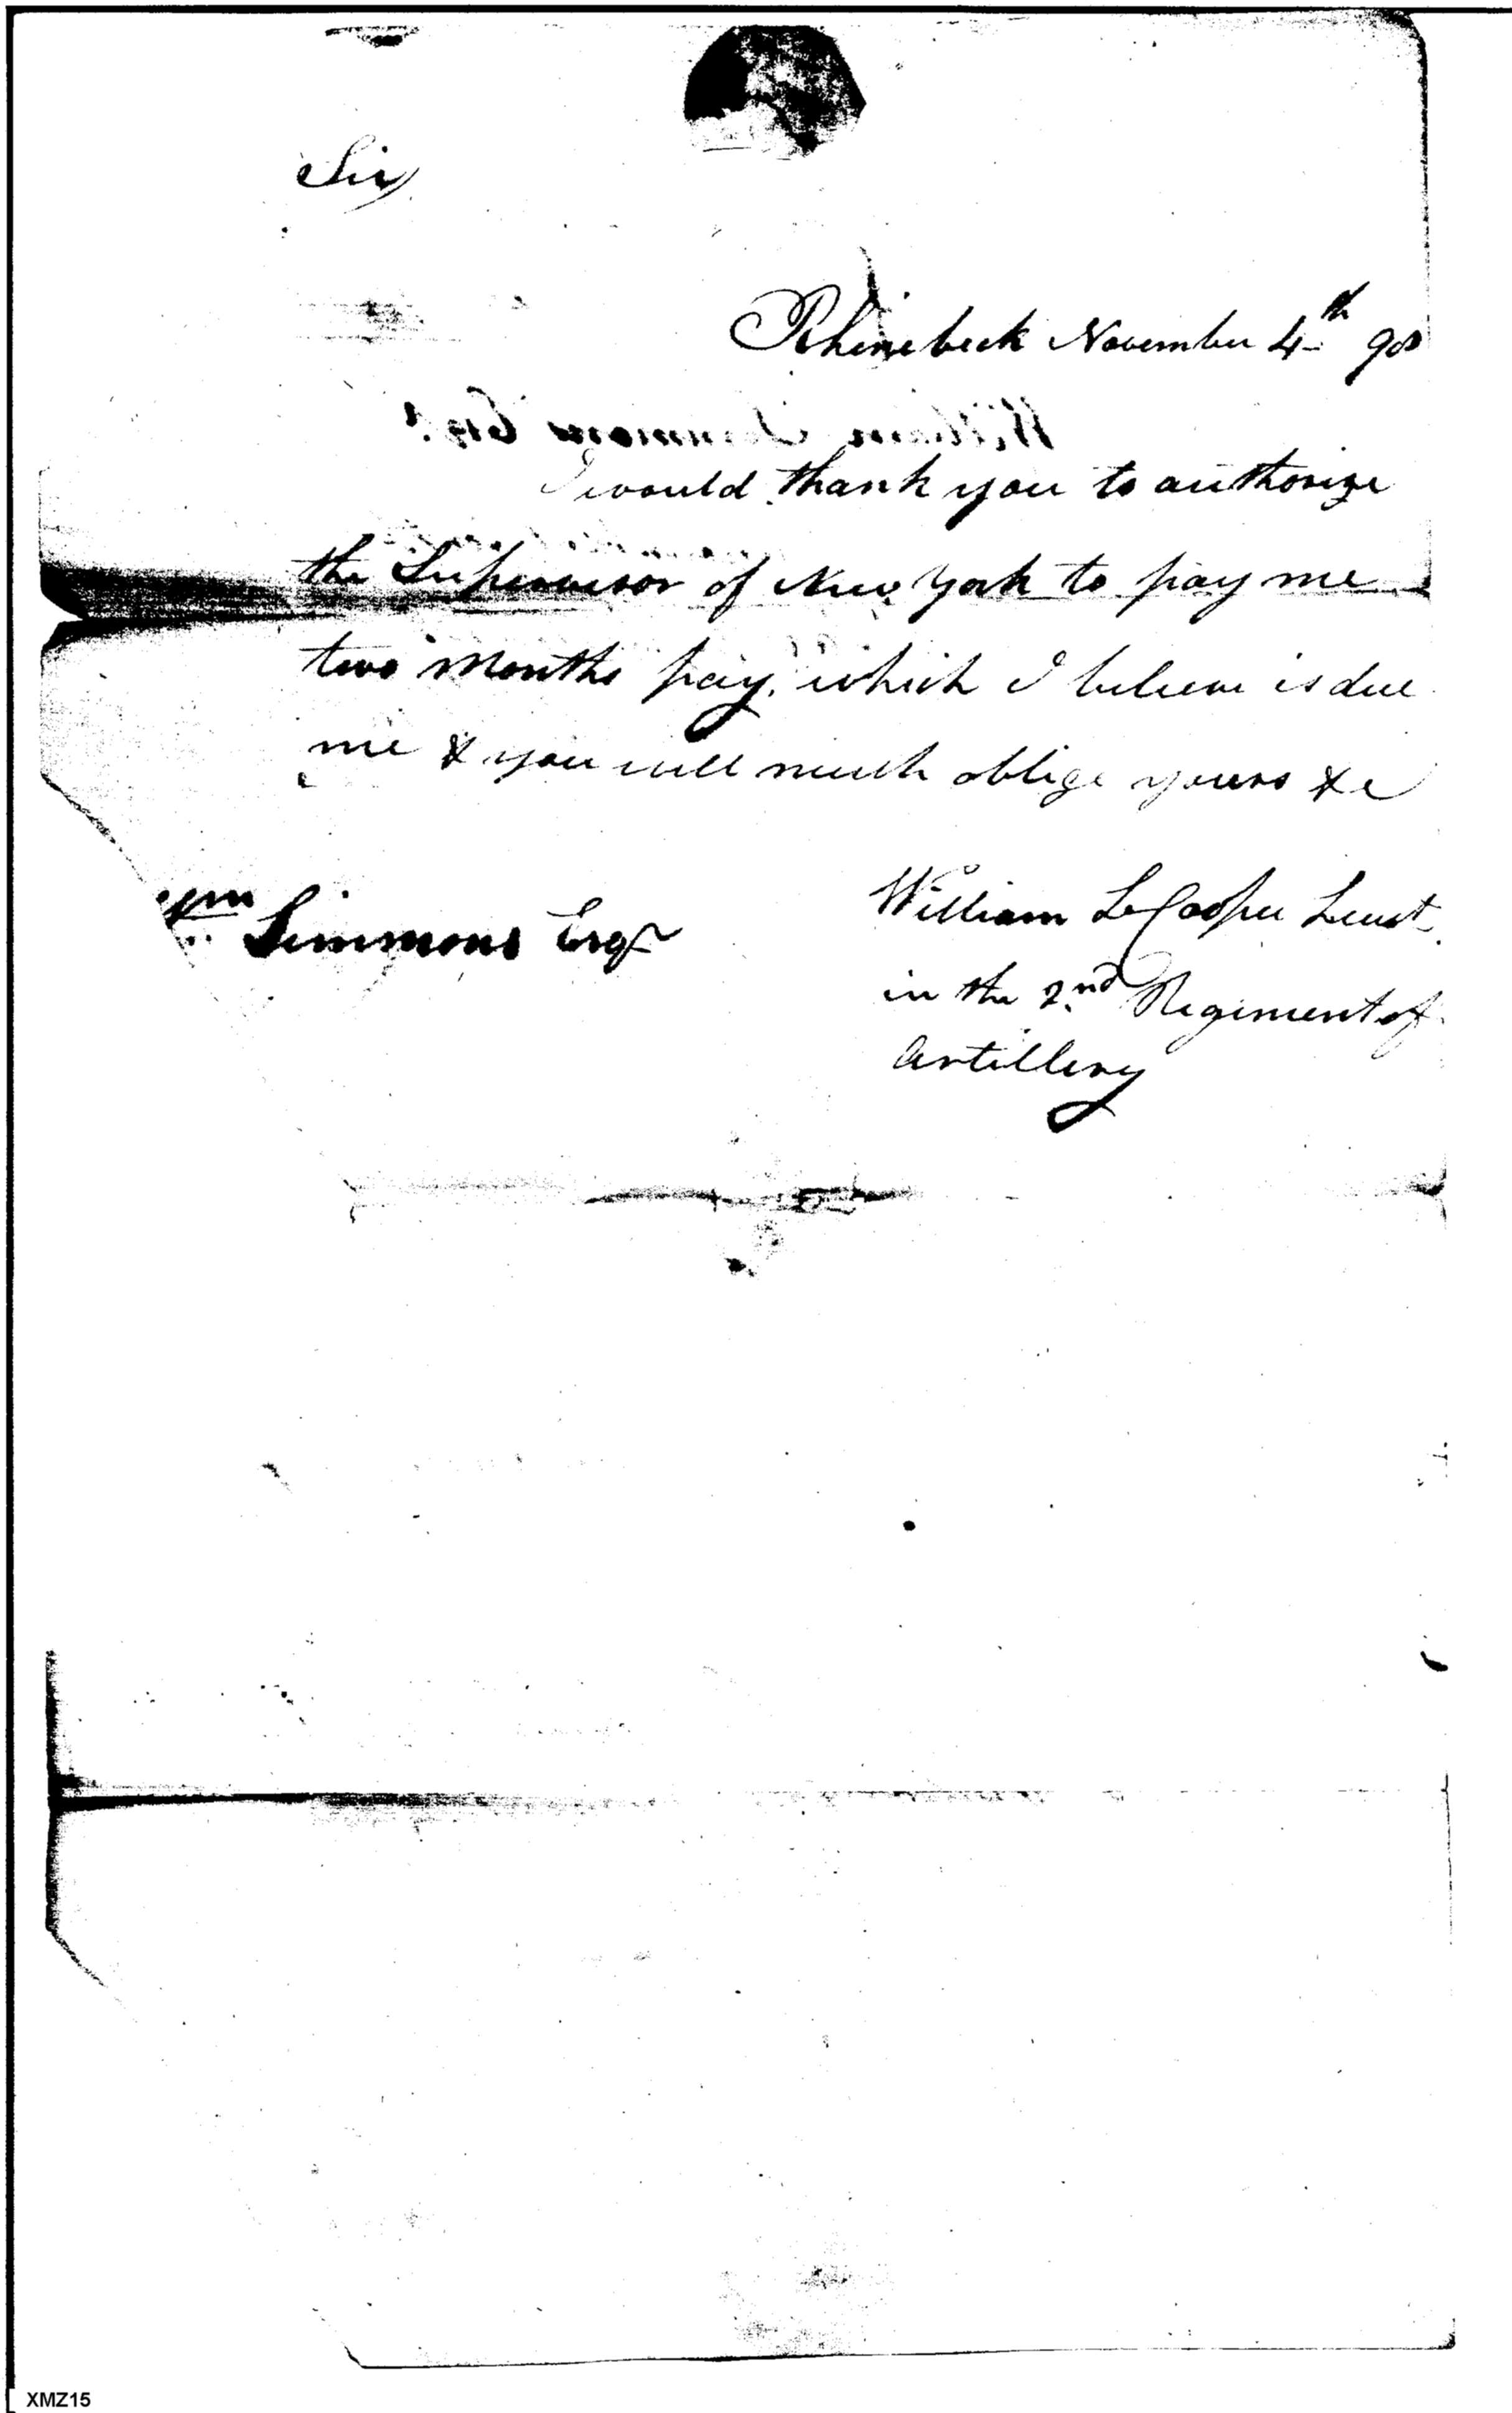 Sir
Rhinebeck November 4th 98
William Simmons Esqr.
I would thank you to authorize
the Supervisor of New York to pay me
two months pay, which I believe is due
me & you will much oblige yours &c
William L Cooper Lieut.
Wm Simmons Esqr
in the 2nd Regiment of
Artillery
XMZ15